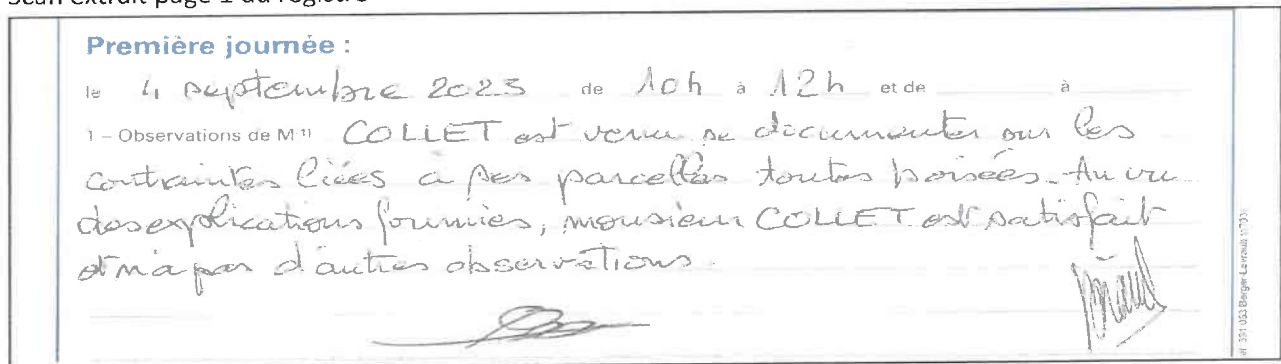 Scan extrait page 1 du registre
Première journée :
le 4 septembre 2023 de 10h à 12h et de à
1 – Observations de M (1) COLLET est venu se documenter sur les
contraintes liées à ses parcelles toutes boisées. Au vu
des explications fournies, monsieur COLLET est satisfait
et n'a pas d'autres observations.
Berger-Levrault